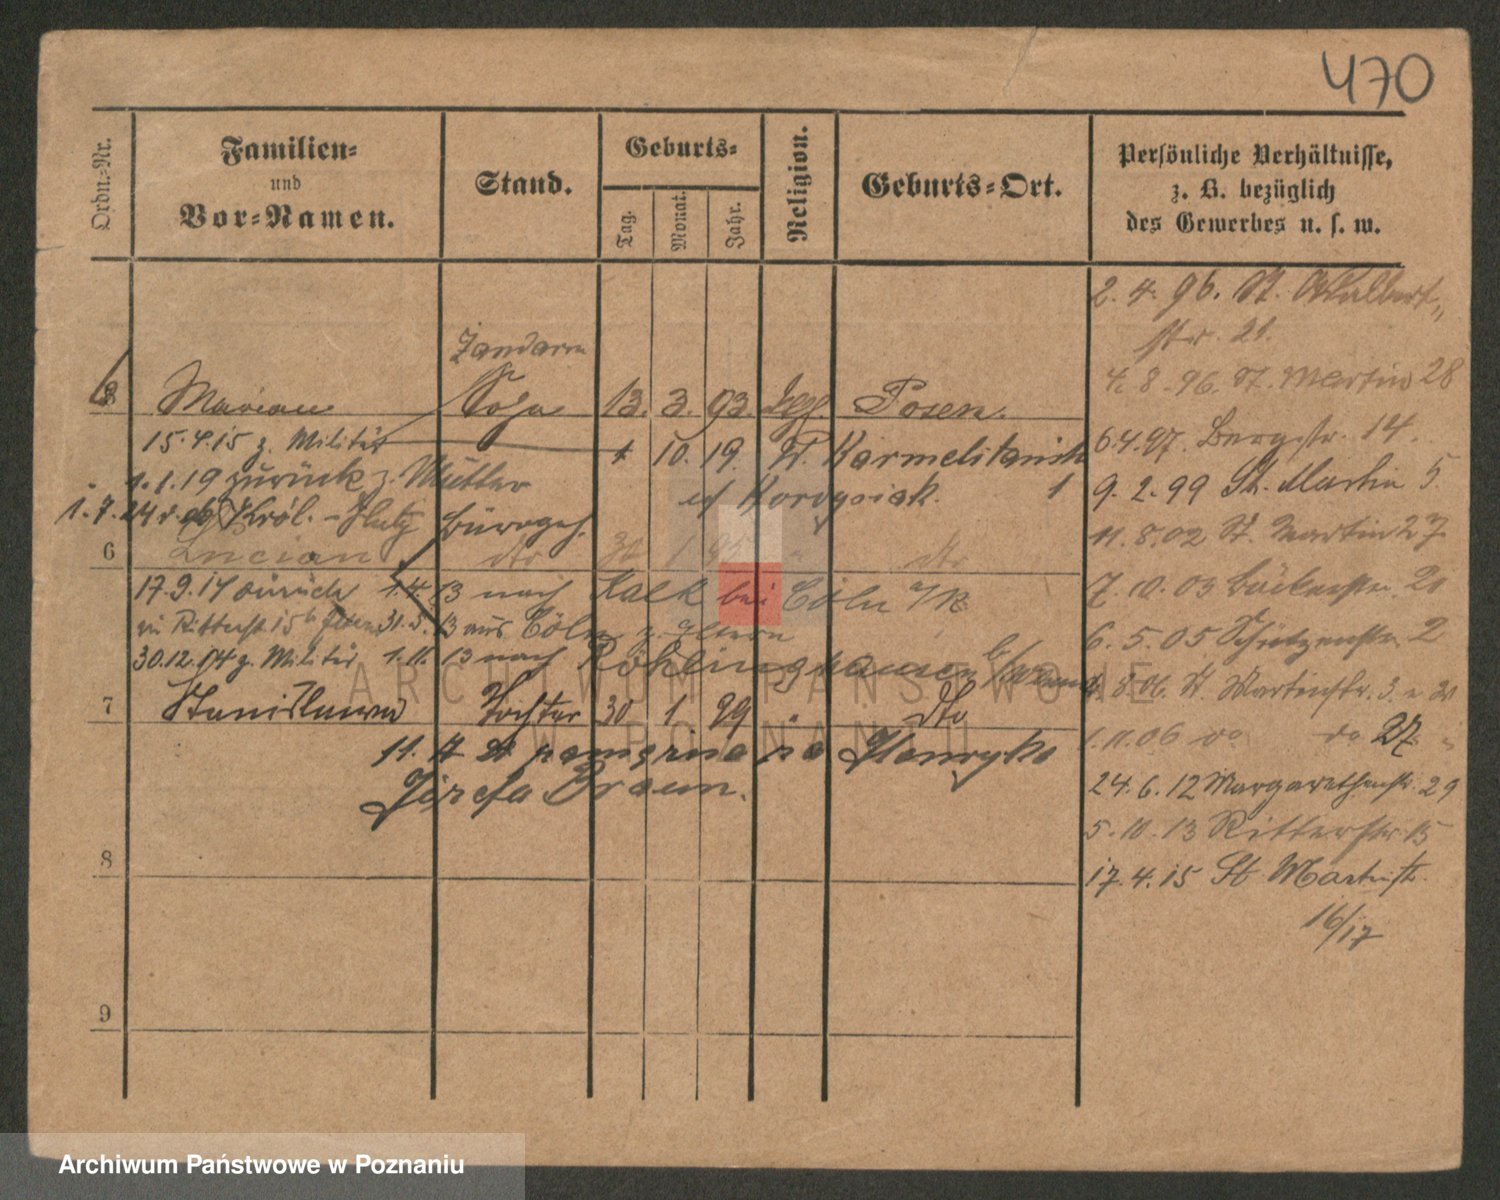 470
Ordn.-Nr.
Familien-
und
Vor-Namen.
Stand.
Geburts-
Tag.
Monat.
Jahr.
Religion.
Geburts-Ort.
Persönliche Verhältnisse,
z. B. bezüglich
des Gewerbes u. s. w.
2. 4. 96. St. Adalbert-
str. 21.
4. 8. 96. St. Martin 28
6.4.97. Bergstr. 14.
9. 2. 99 St. Martin 5
11. 8. 02 St. Martin 27
7. 10. 03 Bäckerstr. 21
6. 5. 05 Schützenstr. 2
8. 06. St. Martinstr. 3
1. 11. 06 do do 27
24. 6. 12 Margarethenstr. 29
5. 10. 13 Ritterstr. 15
17. 4. 15 St Martinstr.
16/17
Marian Sohn 13. 3. 93 Posen.
15.4.15 z. Militär 1 10. 19. W. Karmelitanich
1.1.19 zurück z. Mutter 1
1. 7. 24
6 Lucian dto 30 1 95 " dto
17.9.14 zurück 1. 4. 13 nach Kalk bei Cöln a/R
Ritterst 15 31. 5. 13 aus Cöln z. Eltern
30.12.14 z. Militär 1. 11. 13 nach Röhlinghausen
7 Stanislawa Tochter 30 1. 99 " dto
11. Henryka
Józefa Braun.
8
9
ARCHIWUM PAŃSTWOWE
W POZNANIU
Archiwum Państwowe w Poznaniu